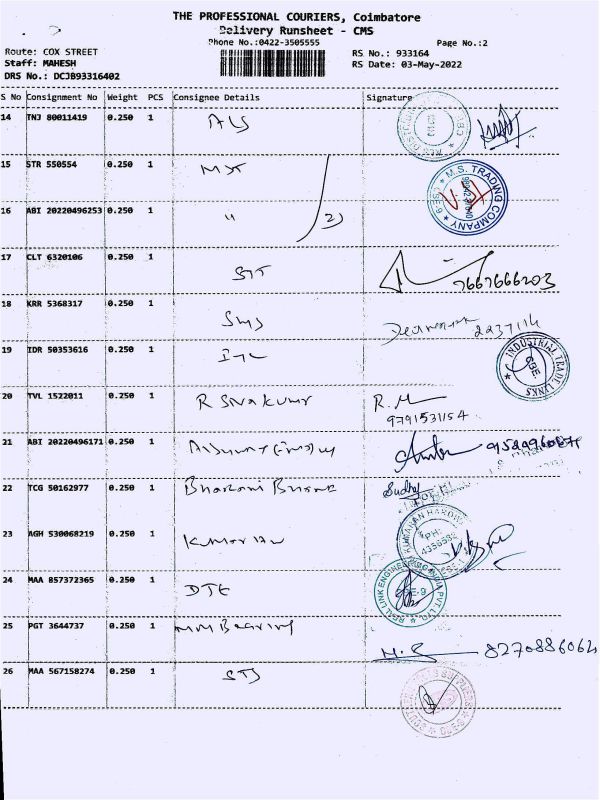 THE PROFESSIONAL COURIERS, Coimbatore
Delivery Runsheet - CMS
Phone No.:0422-3505555
Page No.:2
Route: COX STREET
RS No.: 933164
Staff: MAHESH
RS Date: 03-May-2022
DRS No.: DCJB93316402
S No Consignment No Weight PCS Consignee Details Signature
14 TNJ 80011419 0.250 1 ALS
15 STR 550554 0.250 1 MST
M.S. TRADING COMPANY
16 ABI 20220496253 0.250 1 " 2)
17 CLT 6320106 0.250 1 STT
7667666203
18 KRR 5368317 0.250 1 SMS
2237114
19 IDR 50353616 0.250 1 ITL
INDUSTRIAL TRADE LINKS
CBE.
20 TVL 1522011 0.250 1 R Sivakumar R.
9791531154
21 ABI 20220496171 0.250 1
22 TCG 50162977 0.250 1 Bharani
23 AGH 530068219 0.250 1 Kumaran
PH:
24 MAA 857372365 0.250 1 DTE
25 PGT 3644737 0.250 1 MM Bearing
M.S 8270886062
26 MAA 567158274 0.250 1 STS